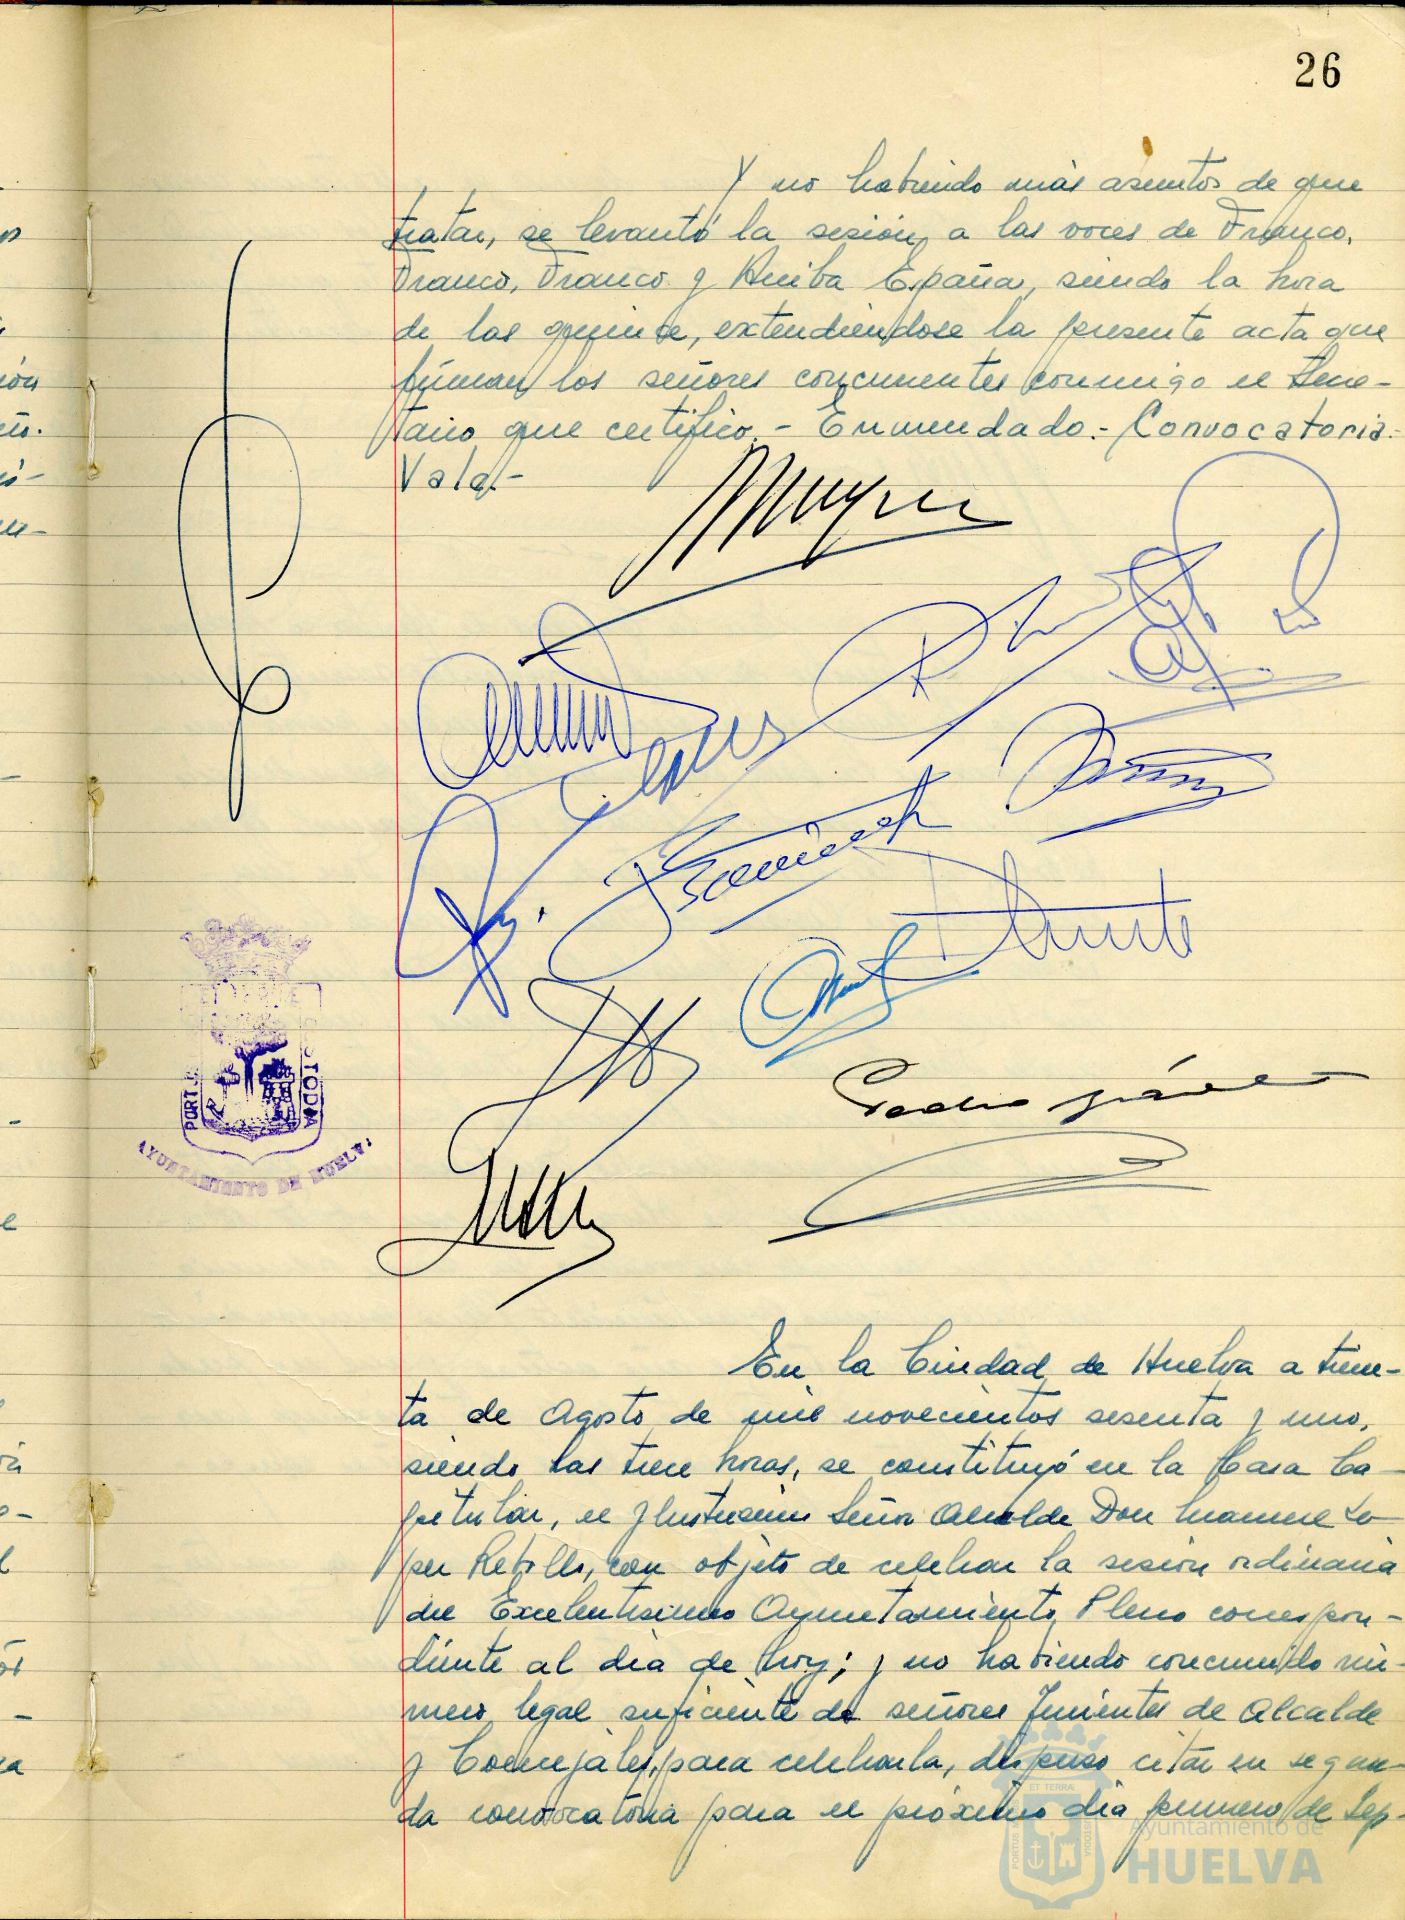 26
Y no habiendo más asuntos de que
tratar, se levantó la sesión, a las voces de Franco,
Franco, Franco y Arriba España, siendo la hora
de las quince, extendiéndose la presente acta que
firman los señores concurrentes conmigo el Secre-
tario que certifico.- Enmendado.- Convocatoria.-
Vale.-
PORTUS
CUSTODIA
AYUNTAMIENTO DE HUELVA
En la Ciudad de Huelva a trein-
ta de Agosto de mil novecientos sesenta y uno,
siendo las trece horas, se constituyó en la Casa Ca-
pitular, el Ilustrísimo Señor Alcalde Don Manuel Lo-
pez Rebollo, con objeto de celebrar la sesión ordinaria
del Excelentísimo Ayuntamiento Pleno correspon-
diente al día de hoy; y no habiendo concurrido nú-
mero legal suficiente de señores Tenientes de Alcalde
y Concejales, para celebrarla, dispuso citar en segun-
da convocatoria para el próximo día primero de Sep-
Ayuntamiento de
HUELVA